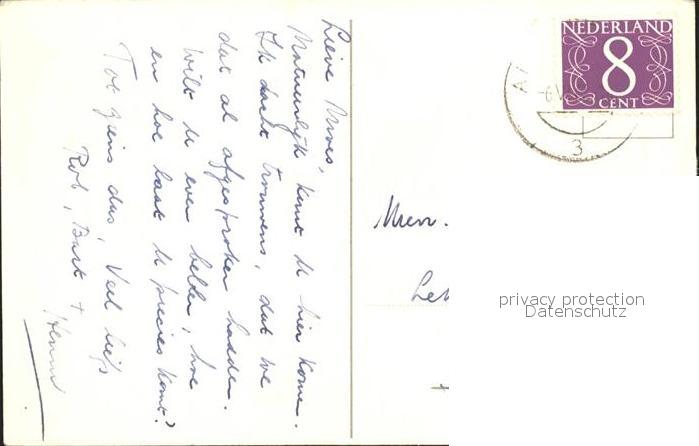 Lieve Moes,
Natuurlijk kunt U hier komen.
Ik dacht trouwens, dat we
dat al afgesproken hadden.
Wilt U even bellen, hoe
en hoe laat U precies komt?
Tot ziens dus, Veel liefs
Rob, Bart +
NEDERLAND
8
CENT
3
Mevr.
privacy protection
Datenschutz